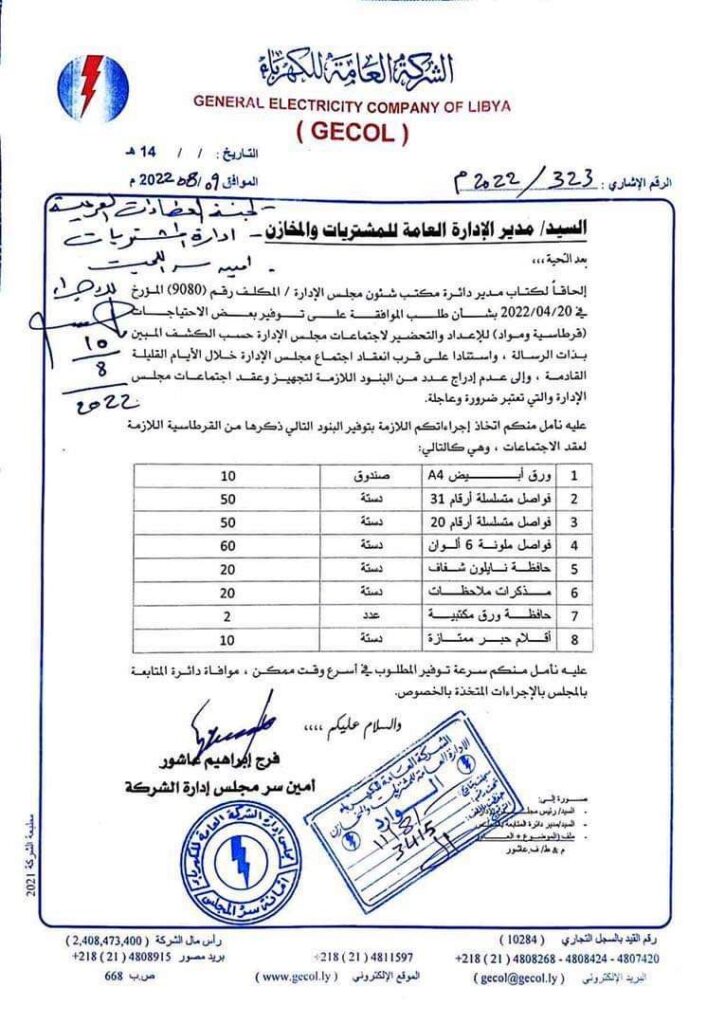 الشركة العامة للكهرباء
GENERAL ELECTRICITY COMPANY OF LIBYA
( GECOL )
التاريخ : / / 14 هـ
الموافق 2022/08/09 م
الرقم الإشاري : 323 / 2022 م
لجنة العطاءات الفرعية
- ادارة المشتريات
للاجراء
10
8
2022
السيد/ مدير الإدارة العامة للمشتريات والمخازن
بعد التحية ،،،
إلحاقاً لكتاب مدير دائرة مكتب شئون مجلس الإدارة / المكلف رقم (9080) المؤرخ
في 2022/04/20 بشان طلب الموافقة على توفير بعض الاحتياجات
(قرطاسية ومواد) للإعداد والتحضير لاجتماعات مجلس الإدارة حسب الكشف المبين
بذات الرسالة ، واستنادا على قرب انعقاد اجتماع مجلس الإدارة خلال الأيام القليلة
القادمة ، وإلى عدم إدراج عدد من البنود اللازمة لتجهيز وعقد اجتماعات مجلس
الإدارة والتي تعتبر ضرورة وعاجلة.
عليه نأمل منكم اتخاذ إجراءاتكم اللازمة بتوفير البنود التالي ذكرها من القرطاسية اللازمة
لعقد الاجتماعات ، وهي كالتالي:
1 ورق أبيض A4 صندوق 10
2 فواصل متسلسلة أرقام 31 دستة 50
3 فواصل متسلسلة أرقام 20 دستة 50
4 فواصل ملونة 6 ألوان دستة 60
5 حافظة نايلون شفاف دستة 20
6 مذكرات ملاحظات دستة 20
7 حافظة ورق مكتبية عدد 2
8 أقلام حبر ممتازة دستة 10
عليه نأمل منكم سرعة توفير المطلوب في أسرع وقت ممكن ، موافاة دائرة المتابعة
بالمجلس بالإجراءات المتخذة بالخصوص.
والسلام عليكم ،،،،
فرج إبراهيم عاشور
أمين سر مجلس إدارة الشركة
مجلس إدارة الشركة العامة للكهرباء
أمانة سر المجلس
الشركة العامة للكهرباء
الإدارة العامة للمشتريات والمخازن
الوارد
11/8/
3415
صورة إلى:
- السيد/ رئيس
- السيد/مدير دائرة المتابعة
- ملف (الموضوع +
م & ط/ ف.عاشور
مطبعة الشركة 2021
رقم القيد بالسجل التجاري ( 10284 )
رأس مال الشركة ( 2,408,473,400 )
+218 ( 21 ) 4808268 - 4808424 - 4807420
+218 ( 21 ) 4811597
بريد مصور 4808915 ( 21 ) 218+
البريد الإلكتروني ( gecol@gecol.ly )
الموقع الإلكتروني ( www.gecol.ly )
ص.ب 668